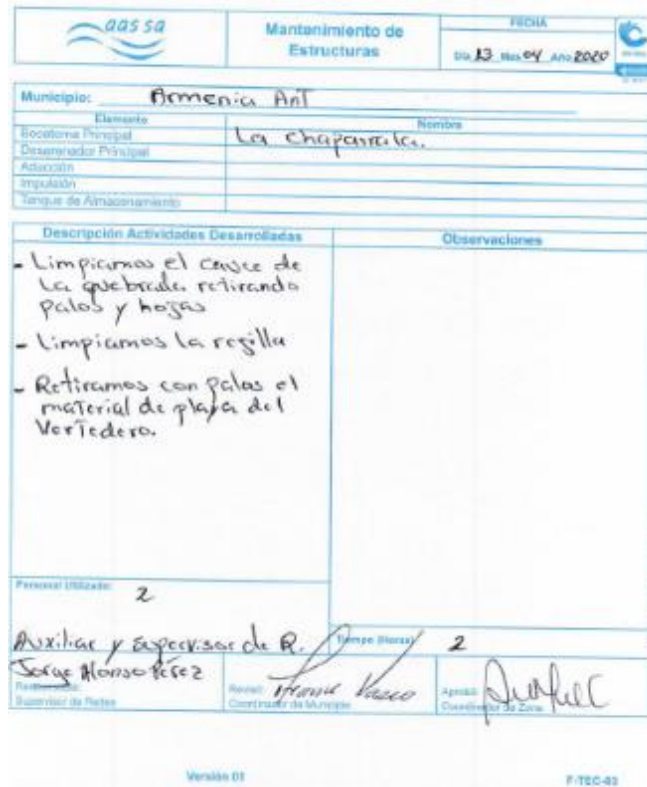 aassa
Mantenimiento de
Estructuras
FECHA
Día 13 Mes 04 Año 2020
Municipio: Armenia Ant
Elemento Nombre
Bocatoma Principal La chaparrala.
Desarenador Principal
Aducción
Impulsión
Tanque de Almacenamiento
Descripción Actividades Desarrolladas Observaciones
- Limpiamos el cauce de
La quebrada retirando
palos y hojas
- Limpiamos la regilla
- Retiramos con palas el
material de playa del
Vertedero.
Personal Utilizado: 2
Auxiliar y supervisor de R. Tiempo (Horas) 2
Jorge Alonso Pérez
Supervisor de Redes
Revisó:
Coordinador de Municipio
Aprobó:
Coordinador de Zona
Versión 01 F-TEC-03